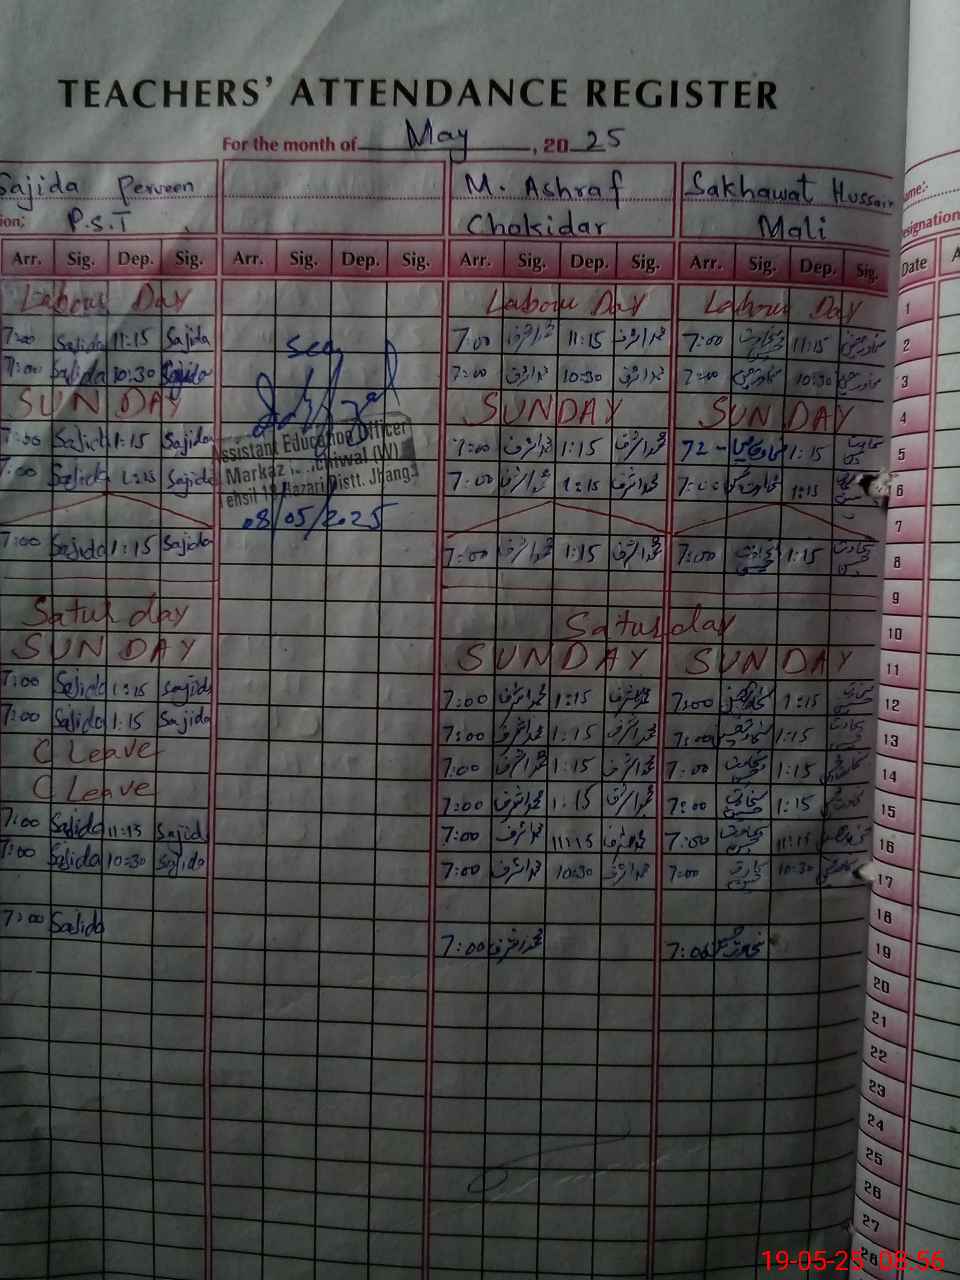 TEACHERS' ATTENDANCE REGISTER
For the month of May, 2025
Sajida Perveen M. Ashraf Sakhawat Hussain ame:-
ion; P.S.T Chokidar Mali esignation
Arr. Sig. Dep. Sig. Arr. Sig. Dep. Sig. Arr. Sig. Dep. Sig. Arr. Sig. Dep. Sig. Date A
Labour Day Labour Day Labour Day 1
7:00 Sajida 11:15 Sajida Seen 7:00 محمد اشرف 11:15 محمد اشرف 7:00 11:15 2
7:00 Sajida 10:30 Sajida 7:00 محمد اشرف 10:30 محمد اشرف 7:00 10:30 3
SUNDAY SUNDAY SUNDAY 4
7:00 Sajida 1:15 Sajida 7:00 محمد اشرف 1:15 محمد اشرف 1:15 5
Assistant Education Officer
Markaz chiwal (W)
Tehsil 18 Hazari Distt. Jhang
7:00 Sajida 1:15 Sajida 7:00 محمد اشرف 1:15 محمد اشرف 7:00 1:15 6
08/05/2025 7
7:00 Sajida 1:15 Sajida 7:00 محمد اشرف 1:15 محمد اشرف 7:00 1:15 8
9
Saturday Saturday 10
SUNDAY SUNDAY SUNDAY 11
7:00 Sajida 1:15 Sajida 7:00 محمد اشرف 1:15 محمد اشرف 7:00 1:15 12
7:00 Sajida 1:15 Sajida 7:00 محمد اشرف 1:15 محمد اشرف 7:00 1:15 13
C Leave 7:00 محمد اشرف 1:15 محمد اشرف 7:00 1:15 14
C Leave 7:00 محمد اشرف 1:15 محمد اشرف 7:00 1:15 15
7:00 Sajida 11:15 Sajida 7:00 محمد اشرف 11:15 محمد اشرف 7:00 11:15 16
7:00 Sajida 10:30 Sajida 7:00 محمد اشرف 10:30 محمد اشرف 7:00 10:30 17
18
7:00 Sajida 7:00 محمد اشرف 7:00 19
20
21
22
23
24
25
26
27
28
19-05-25 08:56